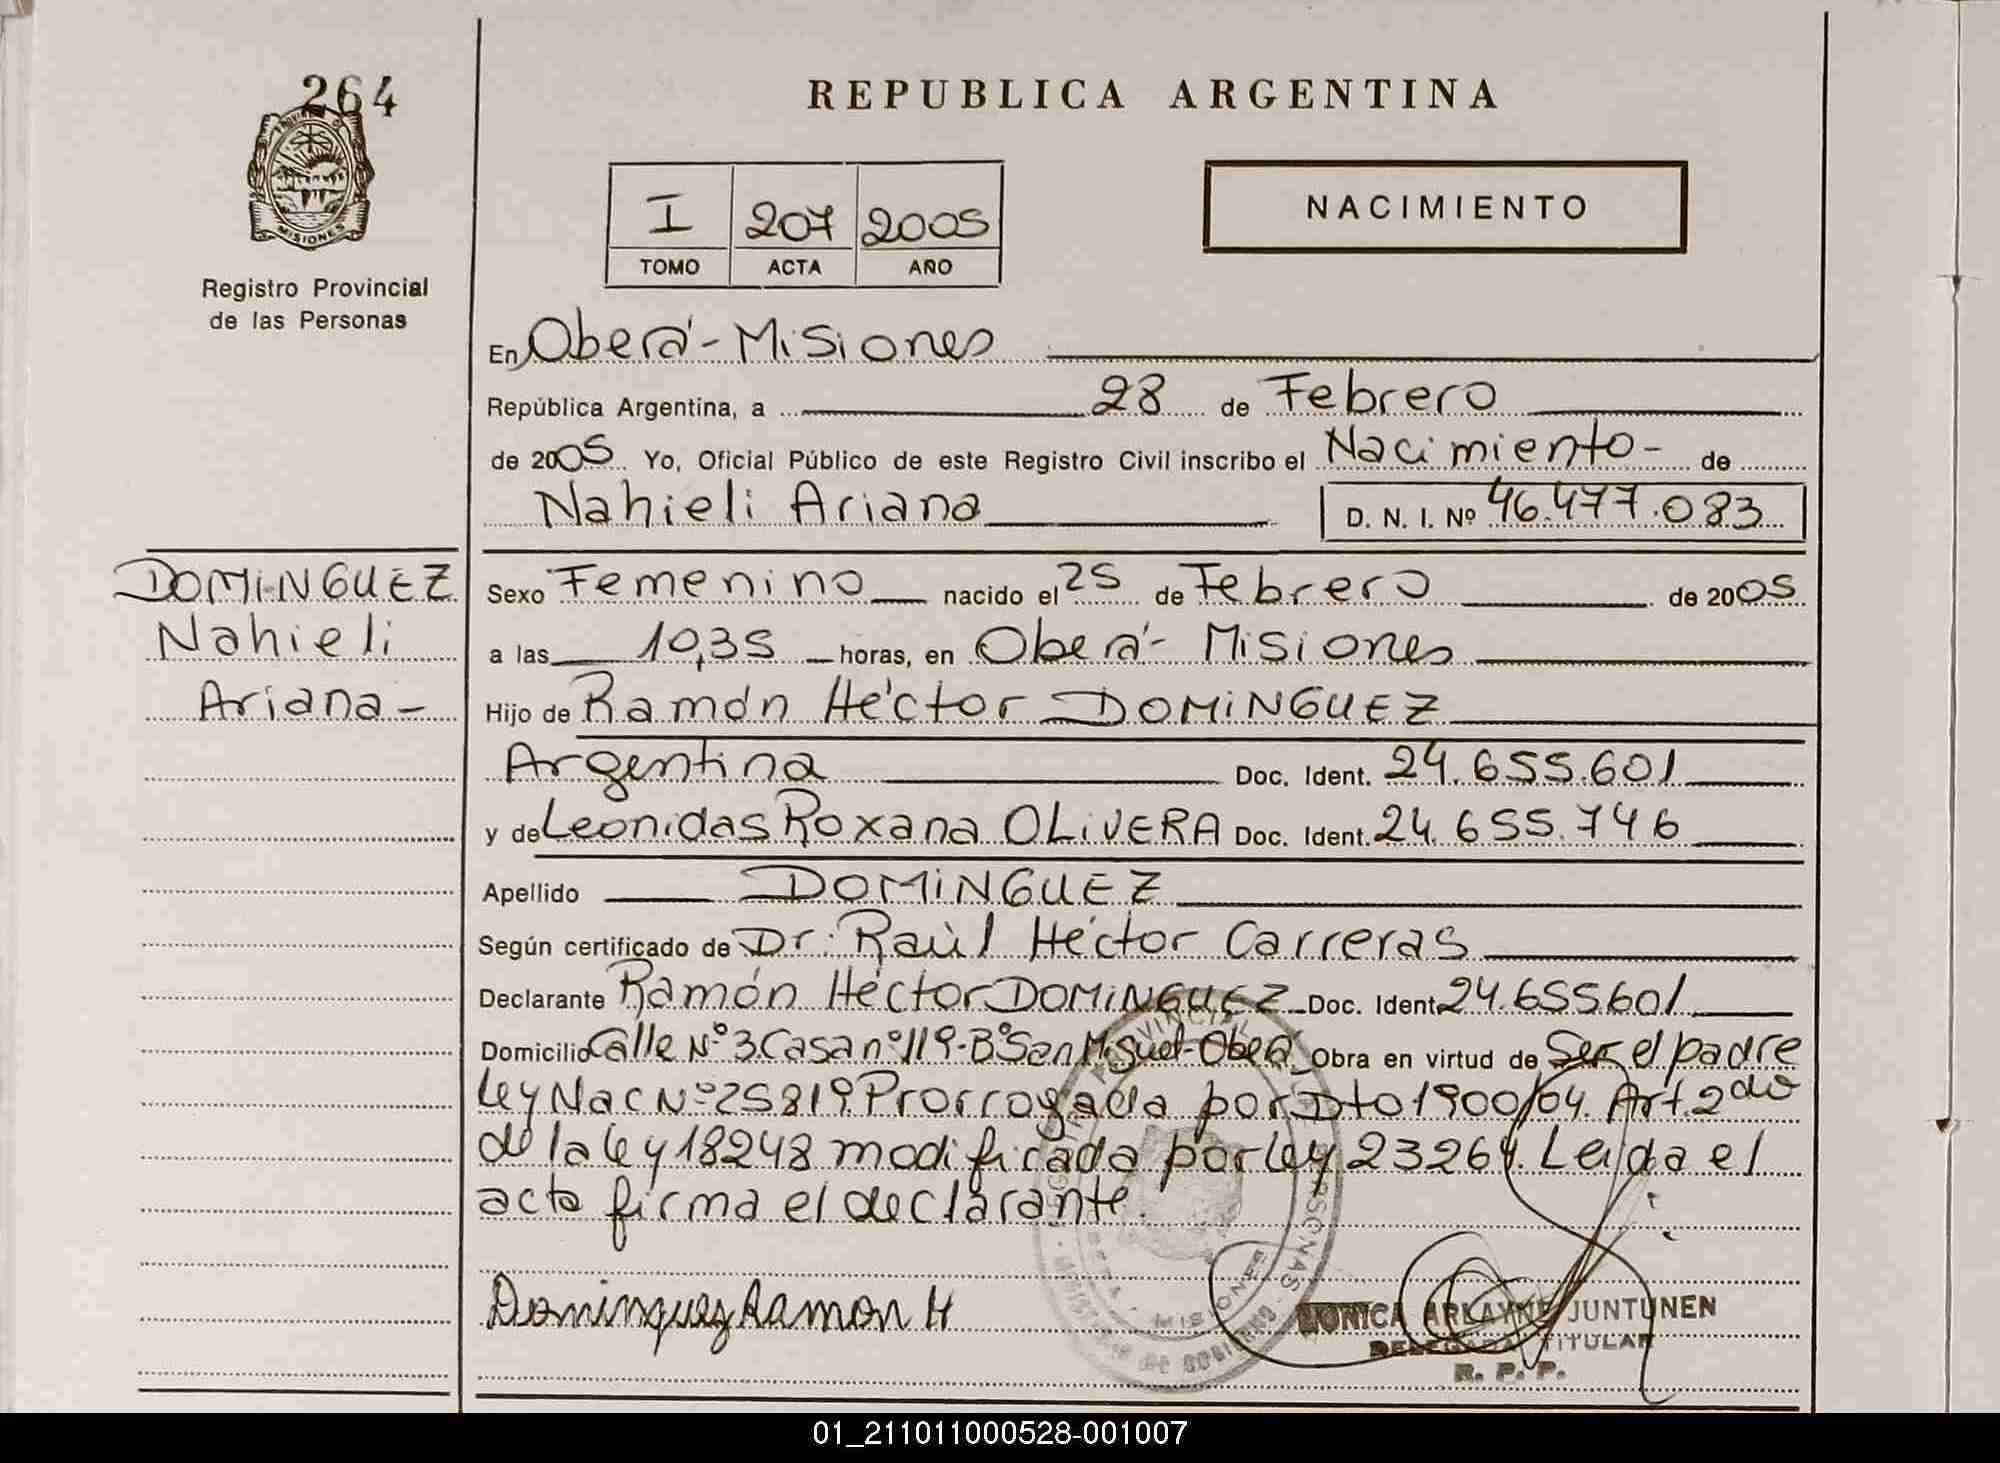 264
PROVINCIA DE
MISIONES
Registro Provincial
de las Personas
REPUBLICA ARGENTINA
I 207 2005
TOMO ACTA AÑO
NACIMIENTO
En Oberá - Misiones
República Argentina, a 28 de Febrero
de 2005 Yo, Oficial Público de este Registro Civil inscribo el Nacimiento - de
Nahieli Ariana D. N. I. Nº 46.477.083
DOMINGUEZ
Nahieli
Ariana -
Sexo Femenino nacido el 25 de Febrero de 2005
a las 10,35 horas, en Oberá - Misiones
Hijo de Ramón Héctor DOMINGUEZ
Argentina Doc. Ident. 24.655.601
y de Leonidas Roxana OLIVERA Doc. Ident. 24.655.746
Apellido DOMINGUEZ
Según certificado de Dr. Raúl Héctor Carreras
Declarante Ramón Héctor DOMINGUEZ Doc. Ident. 24.655601
Domicilio Calle Nº 3 Casa nº 119 - Bº San Miguel - Oberá Obra en virtud de Ser el padre
Ley Nac Nº 25819 Prorrogada por Dto 1900/04. Art. 2do
de la ley 18248 modificada por ley 23264. Leida el
acta firma el declarante.
Dominguez Ramon H
MONICA ARLAYNE JUNTUNEN
DELEGADA TITULAR
R. P. P.
MISIONES
01_211011000528-001007